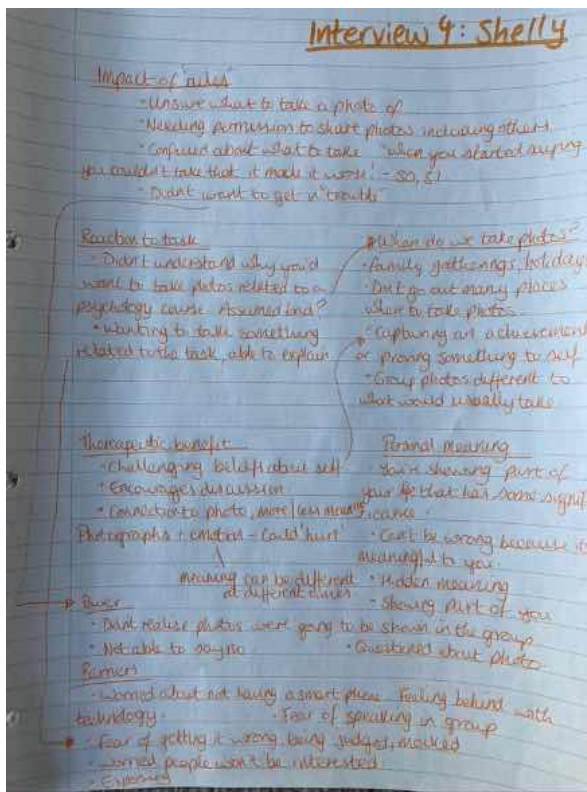 Interview 4: Shelly
Impact of "rules"
- Unsure what to take a photo of
- Needing permission to share photos including others
- Confused about what to take "when you started saying
you couldn't take that it made it worse" - 50, 51
- Didn't want to get in "trouble"
Reaction to task
- Didn't understand why you'd
want to take photos related to a
psychology course. Assumed bad?
- Wanting to take something
related to the task, able to explain
When do we take photos?
- Family gatherings, holidays
- Don't go out many places
when to take photos
- Capturing an achievement
or proving something to self
- Group photos different to
what would usually take
Therapeutic benefit
- Challenging beliefs about self
+ Encourages discussion
- Connection to photo, more/less meaning
Photographs + emotion - could 'hurt'
meaning can be different
at different times
Personal meaning
- You're showing part of
your life that has some signif-
icance
- Can't be wrong because it's
meaningful to you
- Hidden meaning
- Showing part of you
- Questioned about photo
Power
- Didn't realise photos were going to be shown in the group
- Not able to say no
Barriers
- Worried about not having a smart phone. Feeling behind with
technology. - Fear of speaking in group
- Fear of getting it wrong, being judged, mocked
- Worried people won't be interested
- Exposing